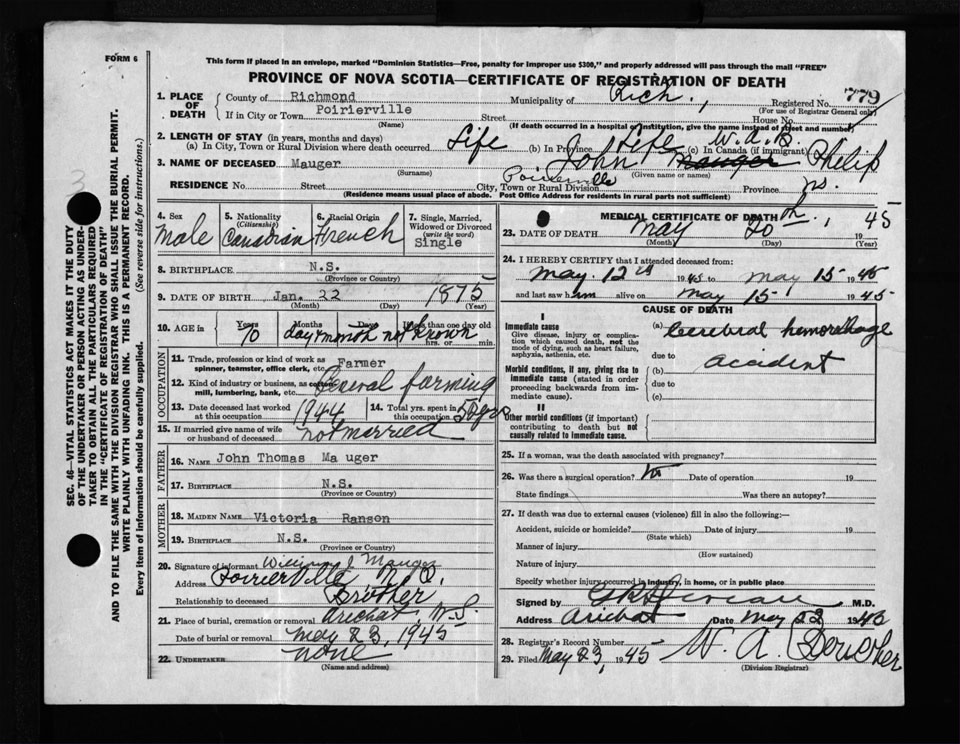 FORM 6
This form if placed in an envelope, marked "Dominion Statistics—Free, penalty for improper use $300," and properly addressed will pass through the mail "FREE"
PROVINCE OF NOVA SCOTIA—CERTIFICATE OF REGISTRATION OF DEATH
SEC. 46—VITAL STATISTICS ACT MAKES IT THE DUTY
OF THE UNDERTAKER OR PERSON ACTING AS UNDER-
TAKER TO OBTAIN ALL THE PARTICULARS REQUIRED
IN THE "CERTIFICATE OF REGISTRATION OF DEATH" AND
TO FILE THE SAME WITH THE DIVISION REGISTRAR WHO SHALL ISSUE THE BURIAL PERMIT.
WRITE PLAINLY WITH UNFADING INK. THIS IS A PERMANENT RECORD.
Every item of information should be carefully supplied. (See reverse side for instructions.)
1. PLACE OF DEATH
County of Richmond Municipality of Rich. Registered No. 779
(For use of Registrar General only)
If in City or Town Poirierville Street House No.
(Name) (If death occurred in a hospital or institution, give the name instead of street and number)
2. LENGTH OF STAY (in years, months and days)
(a) In City, Town or Rural Division where death occurred Life (b) In Province Life (c) In Canada (if immigrant)
3. NAME OF DECEASED Mauger John Mauger Philip
(Surname) (Given name or names)
RESIDENCE No. Street City, Town or Rural Division Poirierville Province NS.
(Residence means usual place of abode. Post Office Address for residents in rural parts not sufficient)
4. Sex Male
5. Nationality (Citizenship) Canadian
6. Racial Origin French
7. Single, Married, Widowed or Divorced (write the word) Single
8. BIRTHPLACE N.S.
(Province or Country)
9. DATE OF BIRTH Jan. 22 1875
(Month) (Day) (Year)
10. AGE in Years Months Days If less than one day old hrs. or min.
70 day & month not known
OCCUPATION
11. Trade, profession or kind of work as spinner, teamster, office clerk, etc. Farmer
12. Kind of industry or business, as cotton mill, lumbering, bank, etc. General farming
13. Date deceased last worked at this occupation 1944
14. Total yrs. spent in this occupation 50 yrs
15. If married give name of wife or husband of deceased not married
FATHER
16. NAME John Thomas Mauger
17. BIRTHPLACE N.S.
(Province or Country)
MOTHER
18. MAIDEN NAME Victoria Ranson
19. BIRTHPLACE N.S.
(Province or Country)
20. Signature of informant William J Mauger
Address Poirierville
Relationship to deceased Brother
21. Place of burial, cremation or removal Arichat, N.S.
Date of burial or removal May 23, 1945
22. UNDERTAKER none
(Name and address)
MEDICAL CERTIFICATE OF DEATH
23. DATE OF DEATH May 20th, 1945
(Month) (Day) (Year)
24. I HEREBY CERTIFY that I attended deceased from:
May. 12th 1945 to May 15 1945
and last saw him alive on May 15 1945
CAUSE OF DEATH
I
Immediate cause
Give disease, injury or complication which caused death, not the mode of dying, such as heart failure, asphyxia, asthenia, etc.
(a) Cerebral hemorrhage
due to
Morbid conditions, if any, giving rise to immediate cause (stated in order proceeding backwards from immediate cause).
(b) accident
due to
(c)
II
Other morbid conditions (if important) contributing to death but not causally related to immediate cause.
25. If a woman, was the death associated with pregnancy?
26. Was there a surgical operation? No Date of operation 19
State findings Was there an autopsy?
27. If death was due to external causes (violence) fill in also the following:—
Accident, suicide or homicide? Date of injury 19
(State which)
Manner of injury
(How sustained)
Nature of injury
Specify whether injury occurred in industry, in home, or in public place
Signed by M.D.
Address Arichat Date May 22 1945
28. Registrar's Record Number
29. Filed May 23, 1945 W. A.
(Division Registrar)